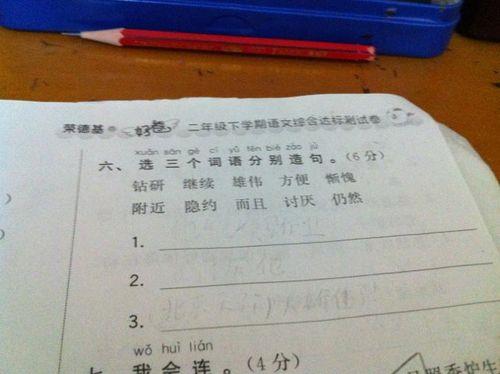 荣德基 好卷 二年级下学期语文综合达标测试卷
xuǎn sān gè cí yǔ fēn bié zào jù
六、选三个词语分别造句。(6分)
钻研 继续 雄伟 方便 惭愧
附近 隐约 而且 讨厌 仍然
1.
2.
3.
wǒ huì lián
我会连。(4分)